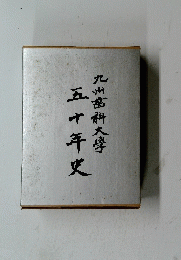 九州歯科大學
五十年史